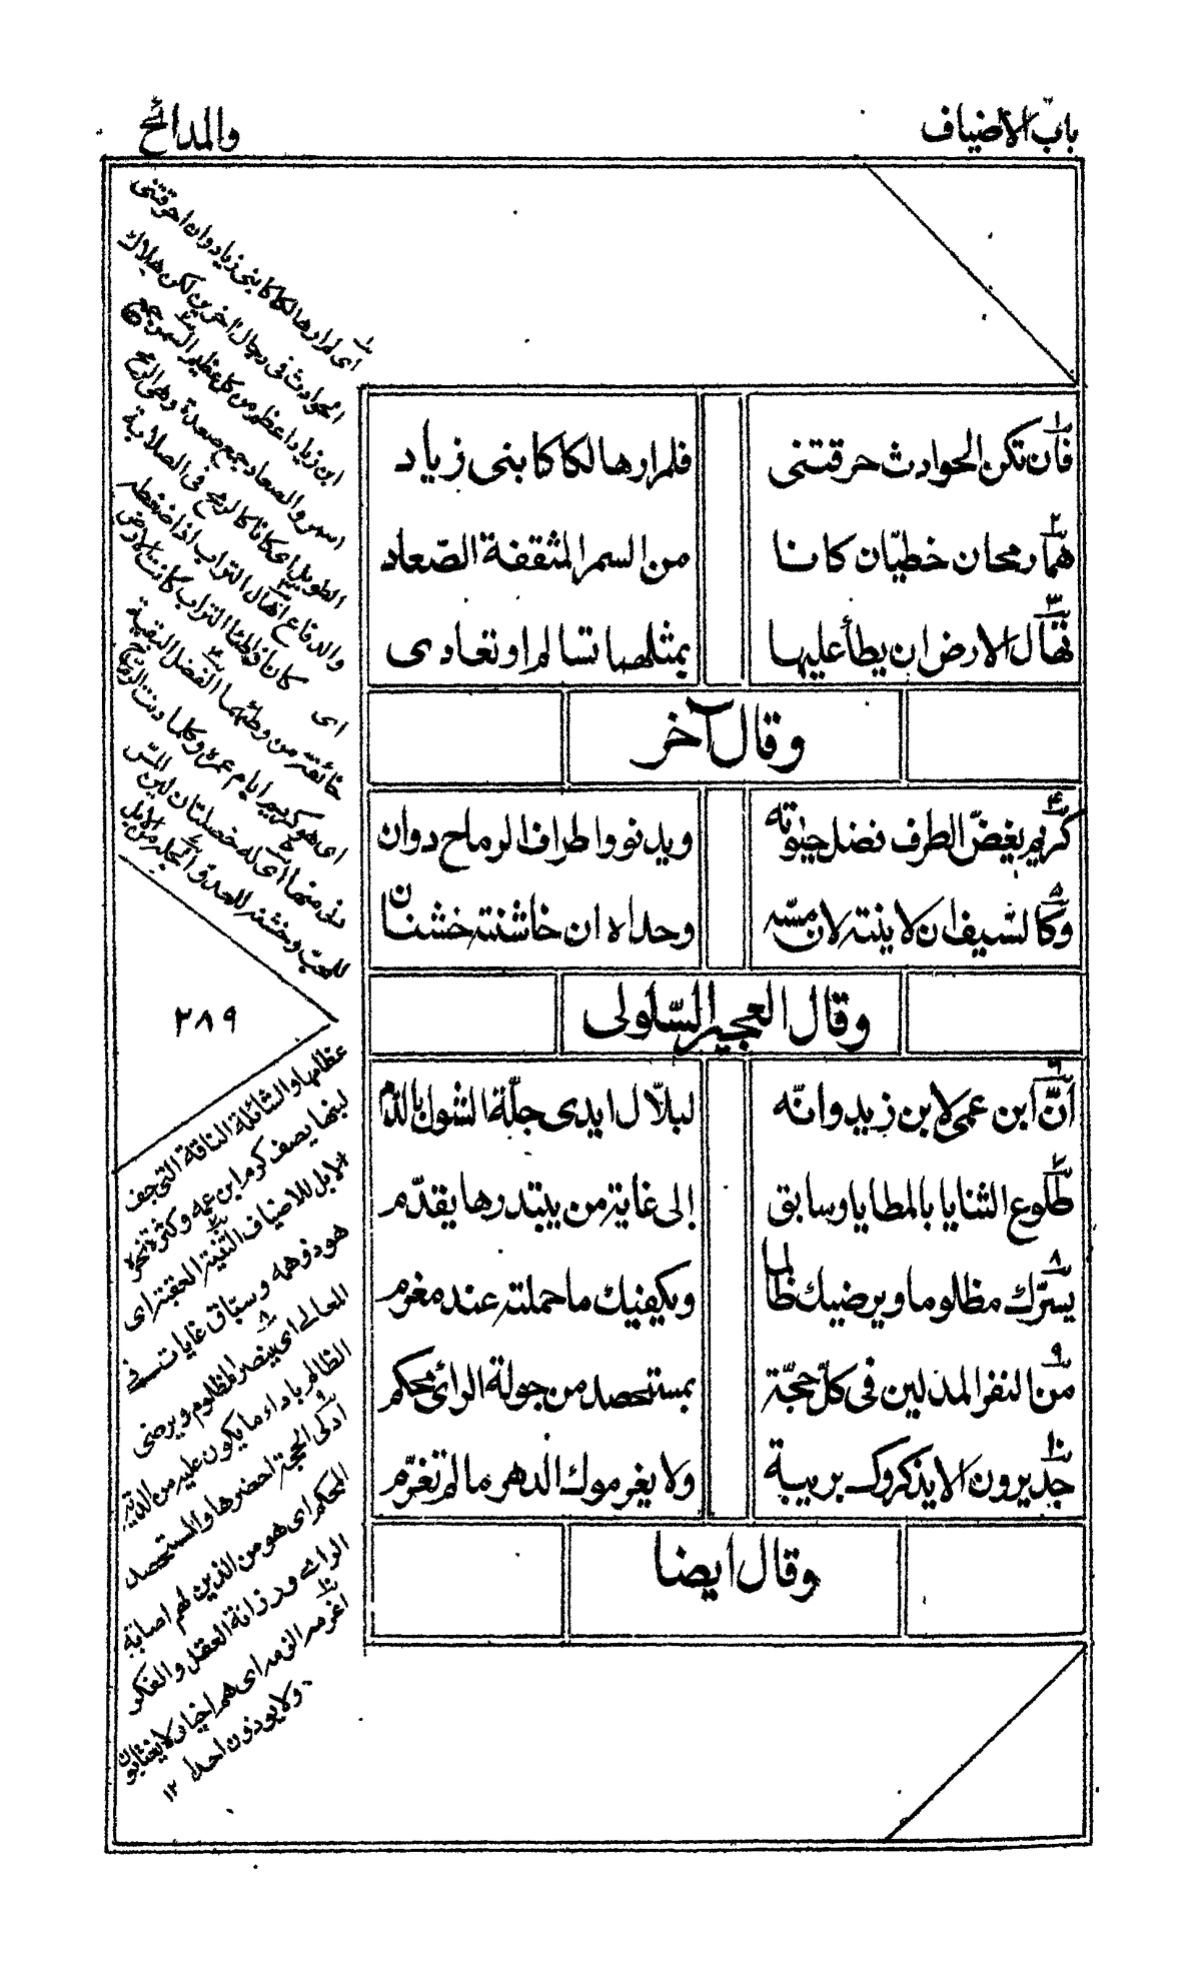 باب الاضياف
والمدائح
فان تكن الحوادث حرقتنى
فلم ارهالكا كابنى زياد
هما رمحان خطيّان كانا
من السمر المثقفة الصّعاد
تهال الارض ان يطأ عليها
بمثلهما تسالم او تعادى
وقال آخر
كريم يغضّ الطرف فضل حيوته
ويدنو واطراف الرماح دوان
وكالسيف ان لاينته لان مسّه
وحداه ان خاشنته خشنان
وقال العجير السّلولى
انّ ابن عمى لابن زيد وانّه
لبلّال ايدى جلّة الشول بالدم
طلوع الثنايا بالمطايا وسابق
إلى غاية من يبتدرها يقدّم
يسرّك مظلوما ويرضيك ظالما
ويكفيك ما حملته عند مغرم
من النفر المدلين فى كلّ حجّة
بمستحصد من جولة الرائ محكم
جديرون الا يذكروك بريبة
ولا يغرموك الدهر ما لم تغرّم
وقال ايضا
اى لم ارهالكا كابنى زياد وان احرقتنى
الحوادث فى رجال آخرين لكن هلاك
ابن زياد اعظم من كل عظيم السمر جمع
اسمر والصعاد جمع صعدة وهى الرمح
الطويل اى كانا كالرمح فى الصلابة
والدفاع انهال التراب اذا ضغطه
كان اذا وطئا التراب كانت الارض
خائفة من وطئهما الفضل البقية
اى هو كريم ايام عمره وكلما دنت الرماح
دنى منها اى له خصلتان لين المسّ
للمحب وخشنه للعدو الجلة من الابل
٢٨٩
عظامها والشائلة الناقة التى جف
لبنها يصف كرم ابن عمه وكثرة نحره
الابل للاضياف الثنية العقبة اى
هو ذو همة وسبّاق غايات فى
المعالى اى ينصر المظلوم ويرضى
الظالم باداء ما يكون عليه من الدية
ادلى الحجة احضرها والمستحصد
المحكم اى هو من الذين لهم اصابة
الراى ورزانة العقل والفكر
اغرمه الزمه اى هم اخيار لا يغتابوك
ولا يوذون احدا ١٢